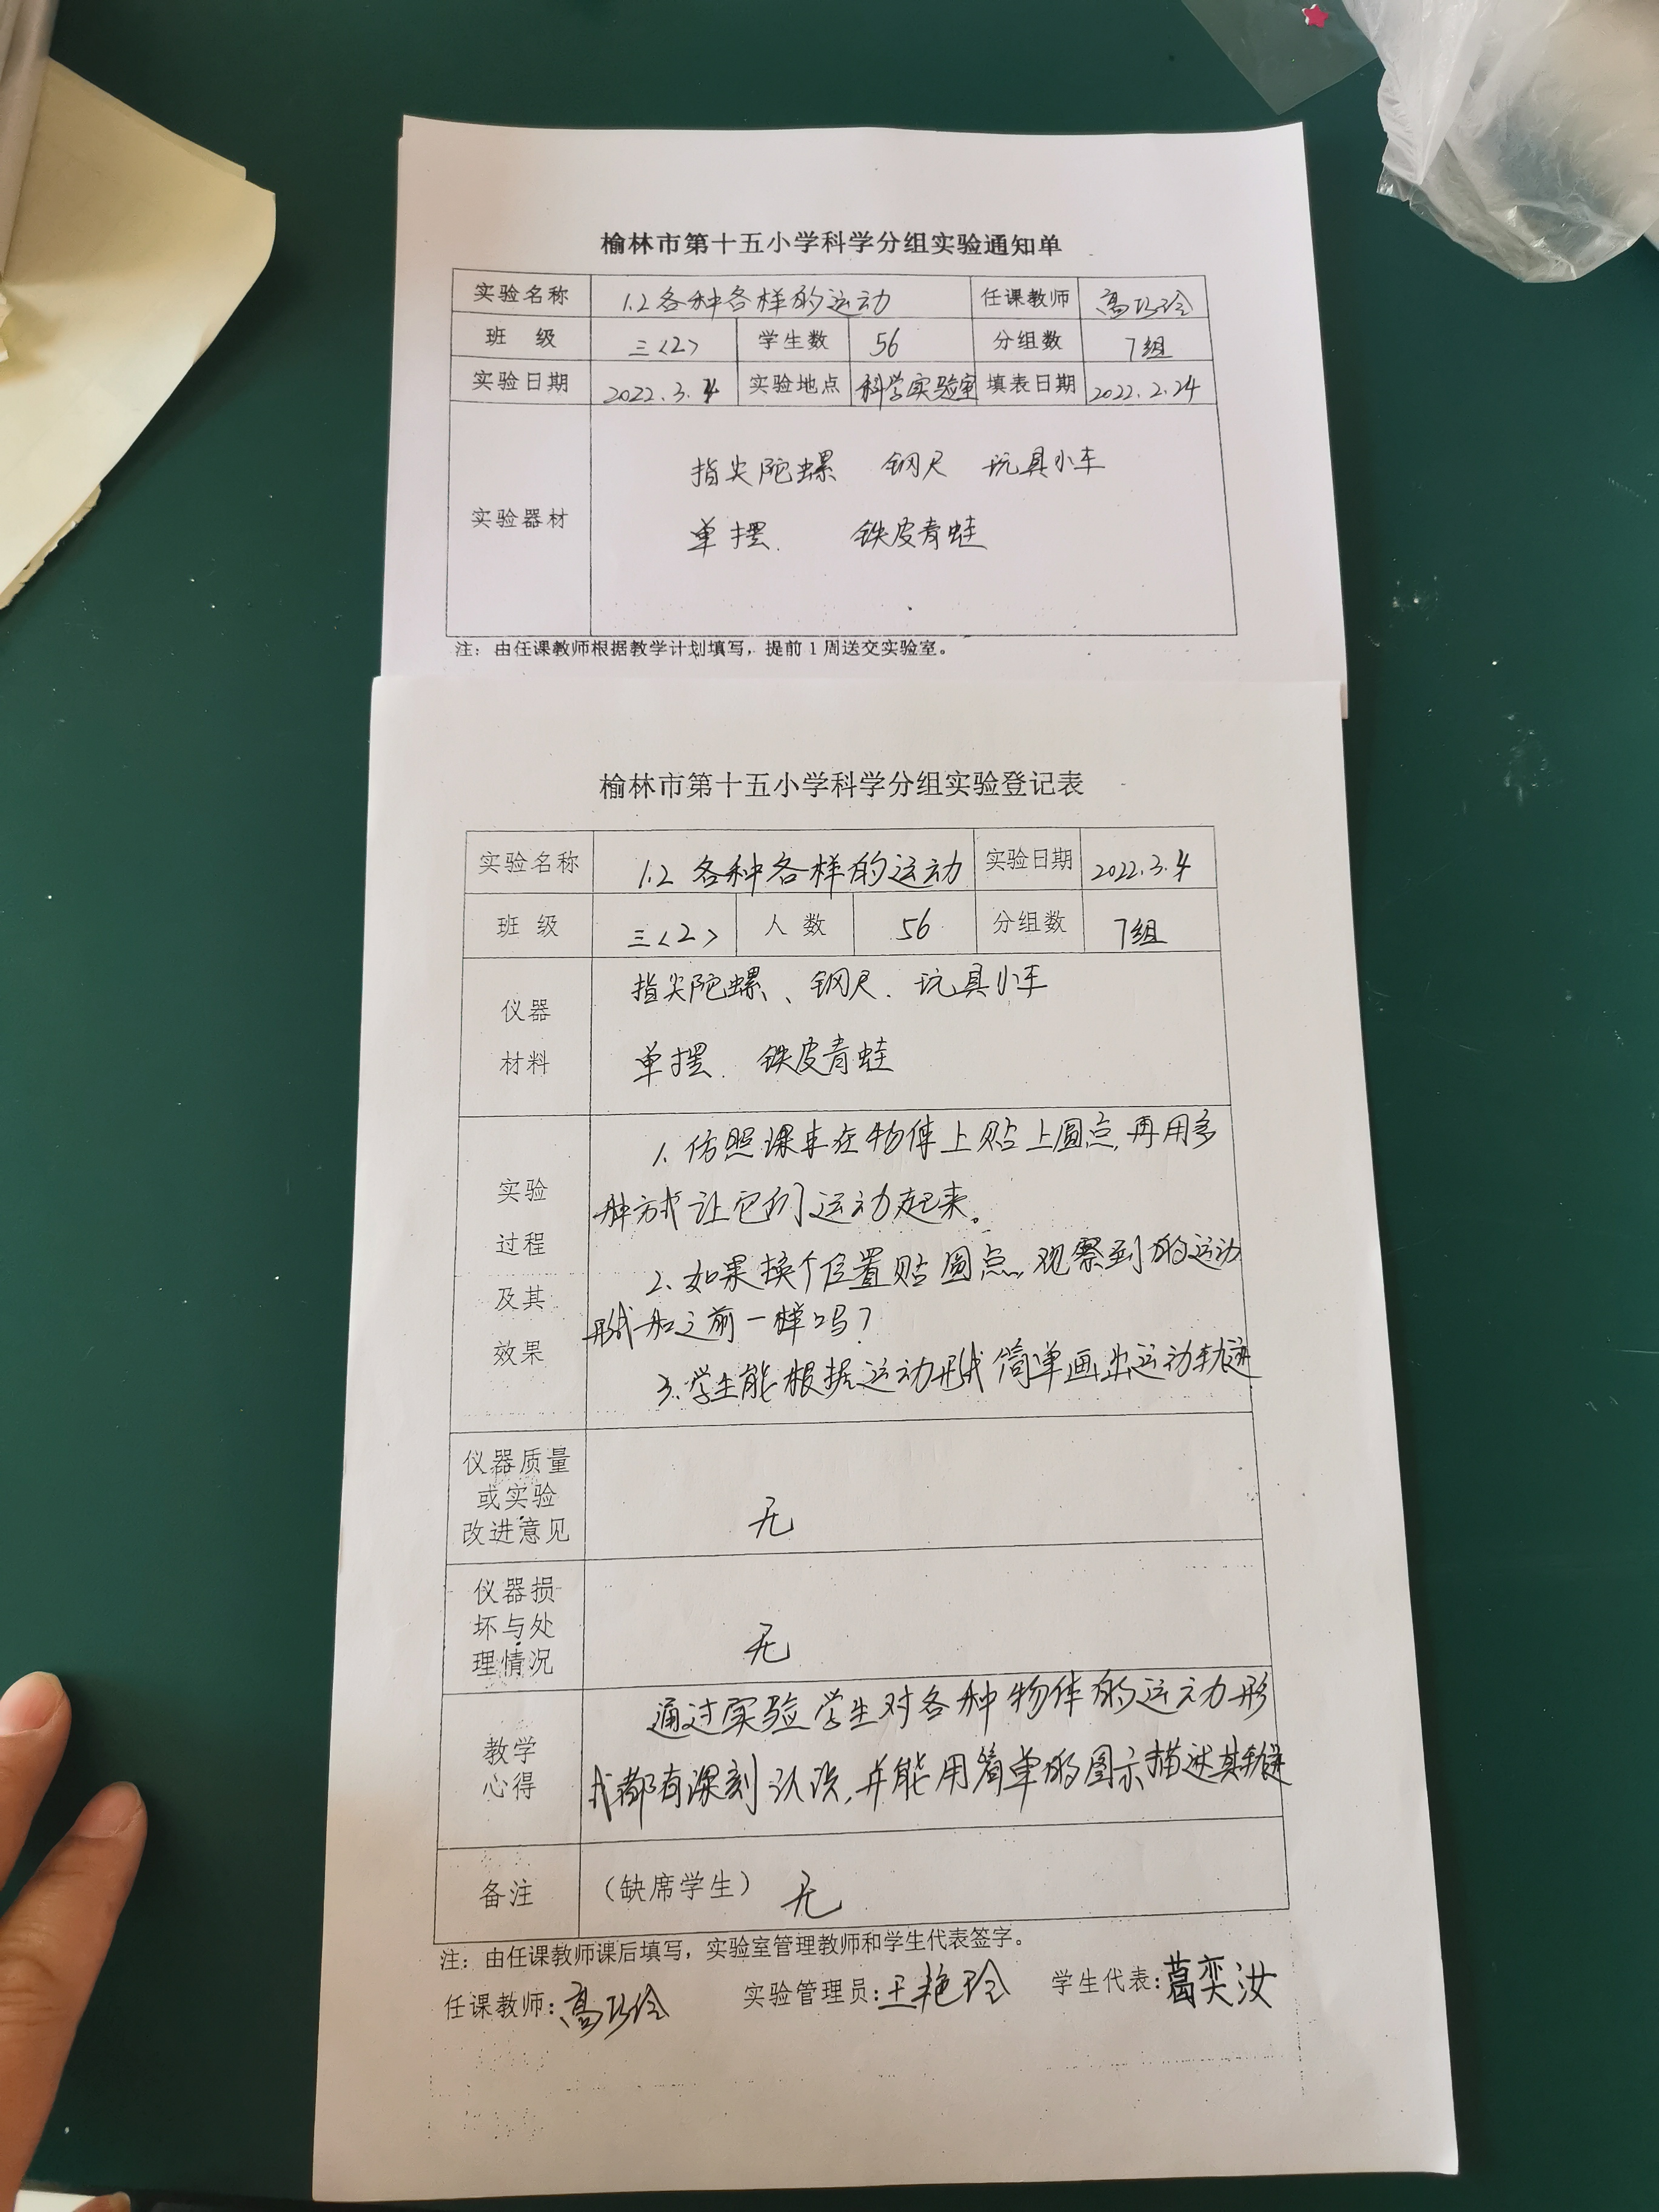 榆林市第十五小学科学分组实验通知单
实验名称 1.2各种各样的运动 任课教师 高巧玲
班 级 三<2> 学生数 56 分组数 7组
实验日期 2022.3.4 实验地点 科学实验室 填表日期 2022.2.24
指尖陀螺 钢尺 玩具小车
实验器材
单摆. 铁皮青蛙
注：由任课教师根据教学计划填写，提前1周送交实验室。
榆林市第十五小学科学分组实验登记表
实验名称 1.2 各种各样的运动 实验日期 2022.3.4
班 级 三<2> 人 数 56 分组数 7组
仪器 指尖陀螺、钢尺.玩具小车
材料 单摆. 铁皮青蛙
1.仿照课本在物体上贴上圆点,再用多
实验 种方式让它们运动起来。
过程 2.如果换个位置贴圆点,观察到的运动
及其 形式和之前一样吗?
效果 3.学生能根据运动形式简单画出运动轨迹
仪器质量
或实验
改进意见 无
仪器损
坏与处
理情况 无
教学 通过实验学生对各种物体的运动形
心得 式都有深刻认识,并能用简单的图示描述其轨迹
备注 （缺席学生） 无
注：由任课教师课后填写，实验室管理教师和学生代表签字。
任课教师:高巧玲 实验管理员:王艳玲 学生代表:葛奕汝